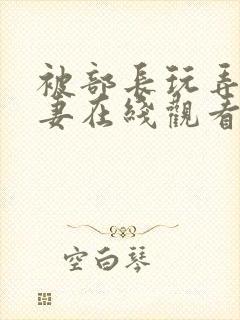 被部長玩弄
妻在綫觀看
空白琴